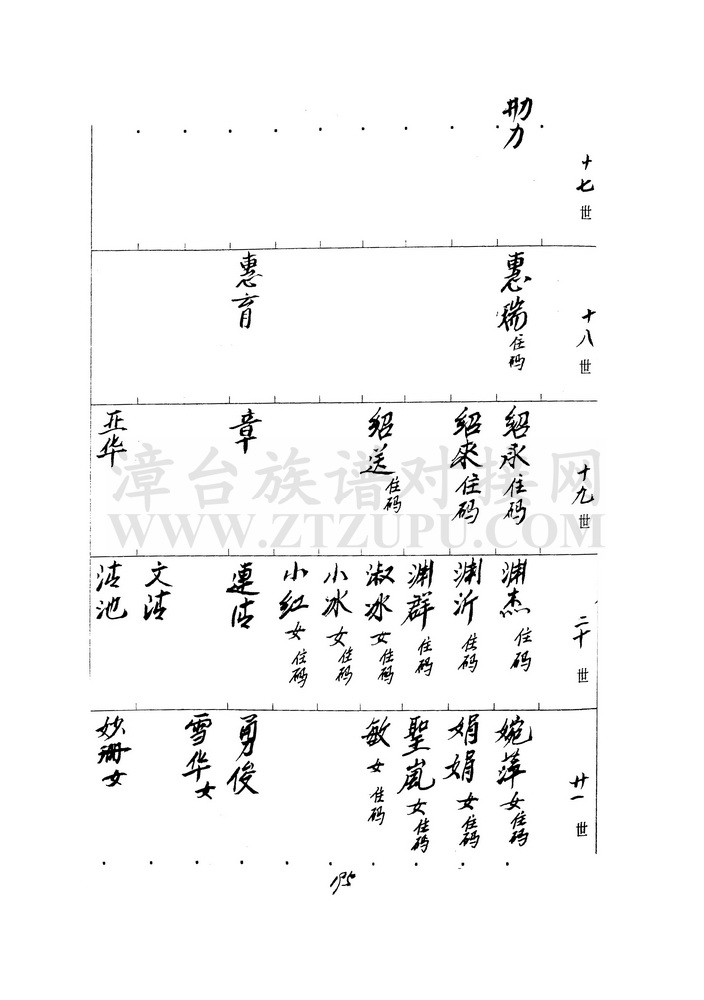 十七世
勐
十八世
惠瑞 住码
惠育
十九世
绍永 住码
绍来 住码
绍送 住码
章
亚华
二十世
渊杰 住码
渊沂 住码
渊群 住码
淑冰 女 住码
小冰 女 住码
小红 女 住码
连洁
文洁
洁池
廿一世
婉萍 女 住码
娟娟 女 住码
圣岚 女 住码
敏 女 住码
勇俊
雪华 女
妙珊 女
195
漳台族谱对接网
WWW.ZTZUPU.COM